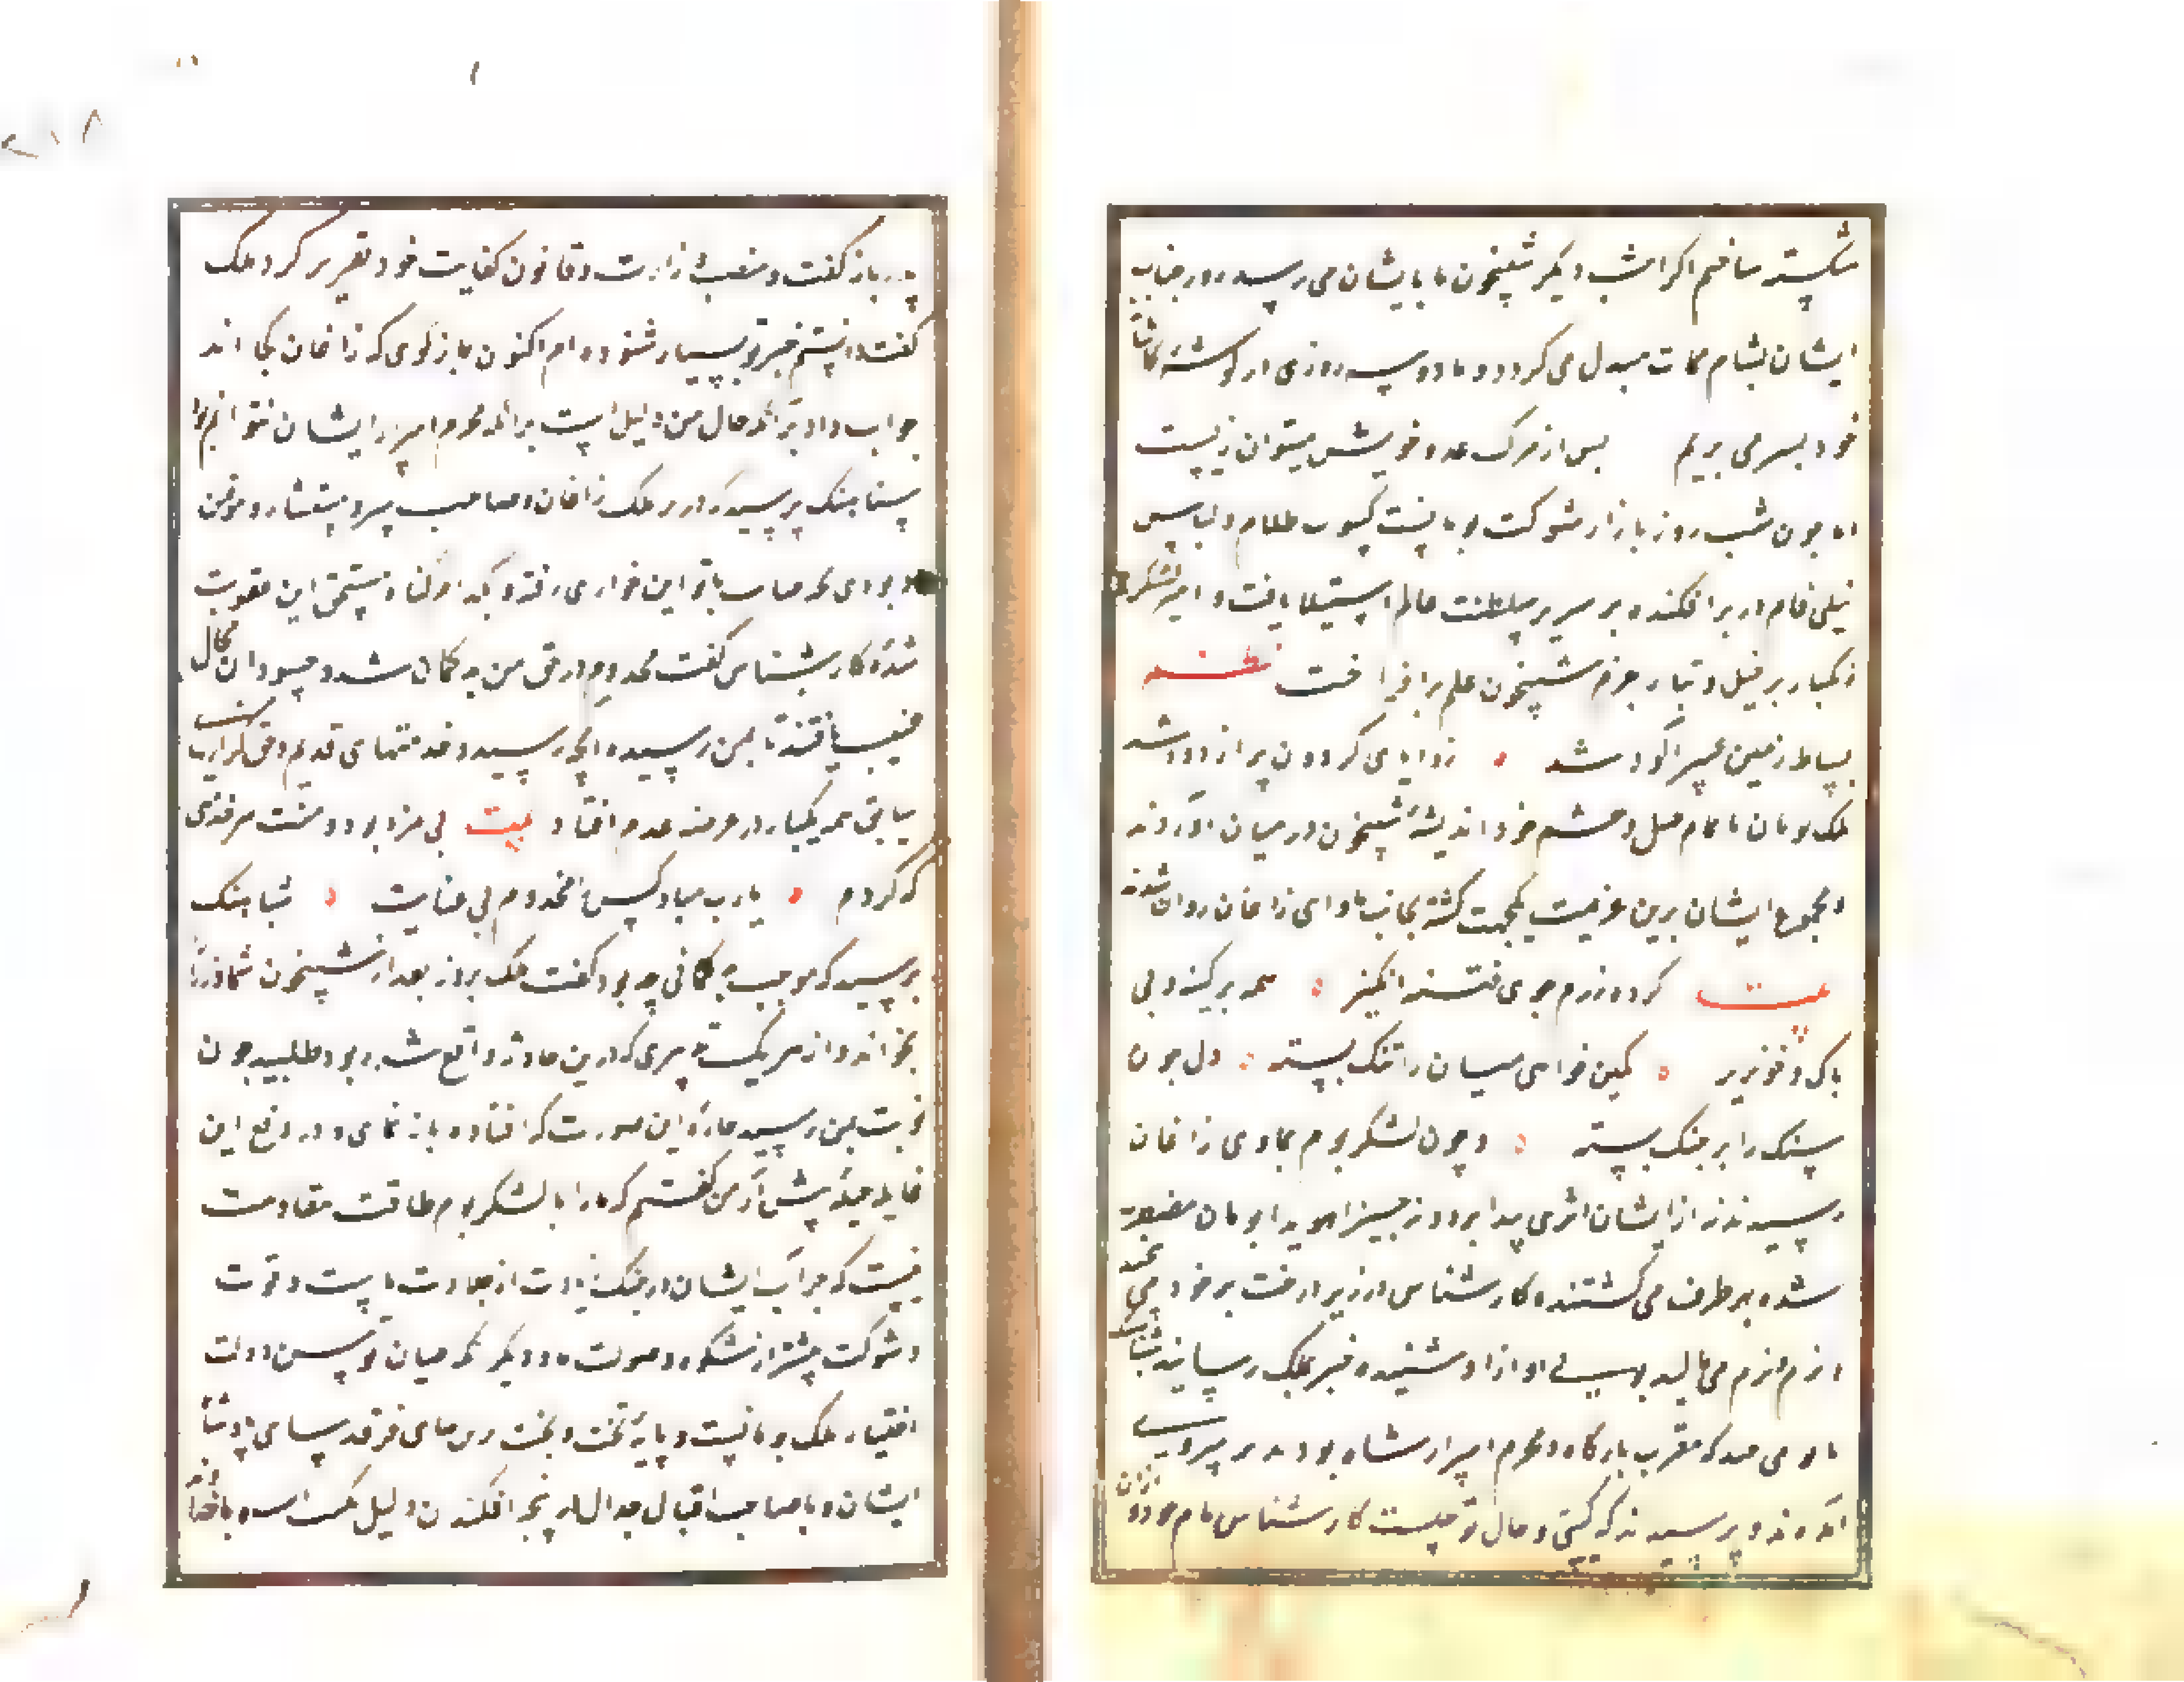 شکسته ساختیم اگر امشب دیگر شبیخون ما بایشان می رسید روز حیات
ایشان بشام ممات مبدل می کردد و ما دو سه روزی در کوشه کاشانه
خود بسر می بریم پس از مرک عدو خویش میتوان زیست
اما چون شب روز بازار شوکت بومانست کسوت ظلام و لباس
نیلی فام در بر افکنده بر سریر سلطنت عالم استیلا یافت و امیر لشکر
زنکبار بر خیل و تبار بعزم شبیخون علم برافراخت نظم
بساط زمین عنبر آلود شد زوایای کردون پر از دود شد
ملک بومان با تمام خیل و حشم خود اندیشه شبیخون در میان آوردند
و مجموع ایشان برین عزیمت یکجهت کشته بجانب ماوای زاغان روان شدند
بیت کرده رزم جوی فتنه انکیز همه پرکینه و بی
باک و خونریز کمین خواهی میان را تنک بسته دل چون
سنک را بر جنک بسته و چون لشکر بوم بماوی زاغان
رسیدند نه از ایشان اثری پیدا بود و نه خبر هویدا بومان
شده بر طرف می کشتند و کارشناس در زیر درخت بر خود می
و نرم نرم می نالید بومی آواز او شنیده خبر بملک رسانید
بومی چند که مقرب بارکاه و محرم اسرار شاه بودند بر سر وی
آمدند و پرسیدند که کیستی و حال تو چیست کارشناس نام خود و ازان
پدر باز کفت و منصب وزارت و قانون کفایت خود تقریر کرد ملک
کفت دانستم خبر تو بسیار شنوده ام اکنون باز کوی که زاغان کجا اند
جواب داد که حال من دلیل است بر آنکه محرم اسرار ایشان نتوانم بود
شباهنک پرسید که از ملک زاغان و صاحب سر و مستشار و موتمن
او بودی بچه حساب با تو این خواری رفته و بکدام کناه مستحق این عقوبت
شده کارشناس کفت مخدوم در حق من بد کمان شد و حسودان مجال
یافتند تا بمن رسید آنچه رسید و خدمتهای قدیم و حق کزاریهای
سابق همه یکبار در عرصه عدم افتاد بیت بی مزد بود و منت هر خدمتی
که کردم یا رب مباد کس را مخدوم بی عنایت شباهنک
پرسید که موجب بدکمانی چه بود کفت ملک پیروز بعد از شبیخون شما وزرا
بخواند و از هر یک تدبیری که درین حادثه واقع شده بود طلبید چون
نوبت بمن رسید چاره این صورت که افتاده باز نمای و در دفع این
غایله حیله پیش آر من کفتم که ما را با لشکر بوم طاقت مقاومت
نیست که جرأت ایشان در جنک زیادت از جلادت ماست و قوت
و شوکت بیشتر از شکوه و صولت ما و دیگر که عنان توسن دولت
اختیار ملک بومانست و پایه تخت و بخت بی همای فرقد سای پادشاه
ایشان و با صاحب اقبال جدال را پنجه افکندن دلیل